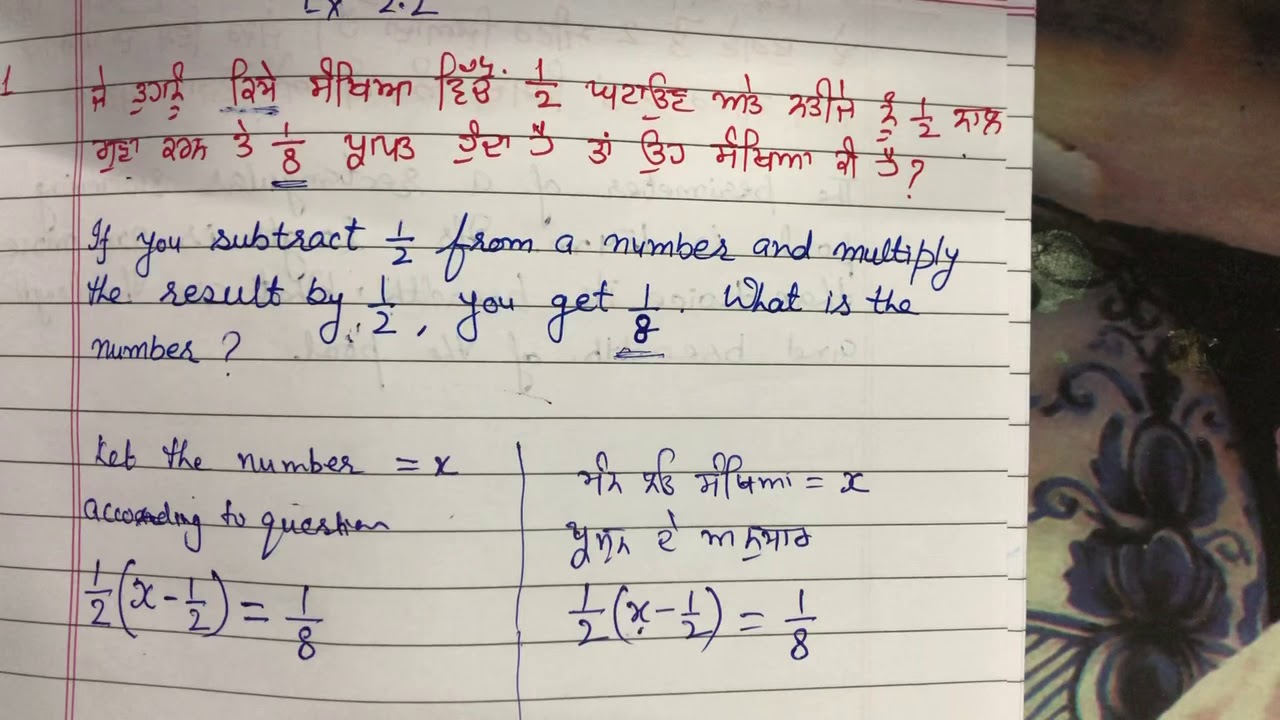 Ex 2.2
1 ਜੇ ਤੁਹਾਨੂੰ ਕਿਸੇ ਸੰਖਿਆ ਵਿੱਚੋਂ 1/2 ਘਟਾਉਣ ਅਤੇ ਨਤੀਜੇ ਨੂੰ 1/2 ਨਾਲ
ਗੁਣਾ ਕਰਨ ਤੇ 1/8 ਪ੍ਰਾਪਤ ਹੁੰਦਾ ਹੈ ਤਾਂ ਉਹ ਸੰਖਿਆ ਕੀ ਹੈ?
If you subtract 1/2 from a number and multiply
the result by 1/2, you get 1/8. What is the
number?
Let the number = x
according to question
1/2(x - 1/2) = 1/8
ਮੰਨ ਲਓ ਸੰਖਿਆ = x
ਪ੍ਰਸ਼ਨ ਦੇ ਅਨੁਸਾਰ
1/2(x - 1/2) = 1/8